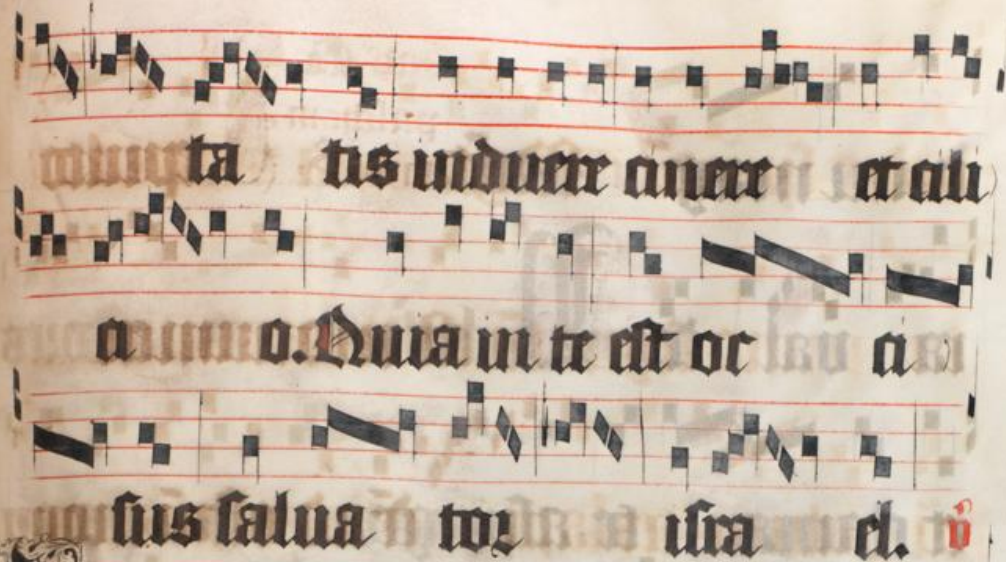 ta tis induere cinere et cili
ci o. Quia in te est oc ci
sus salua tor isra el. v̊